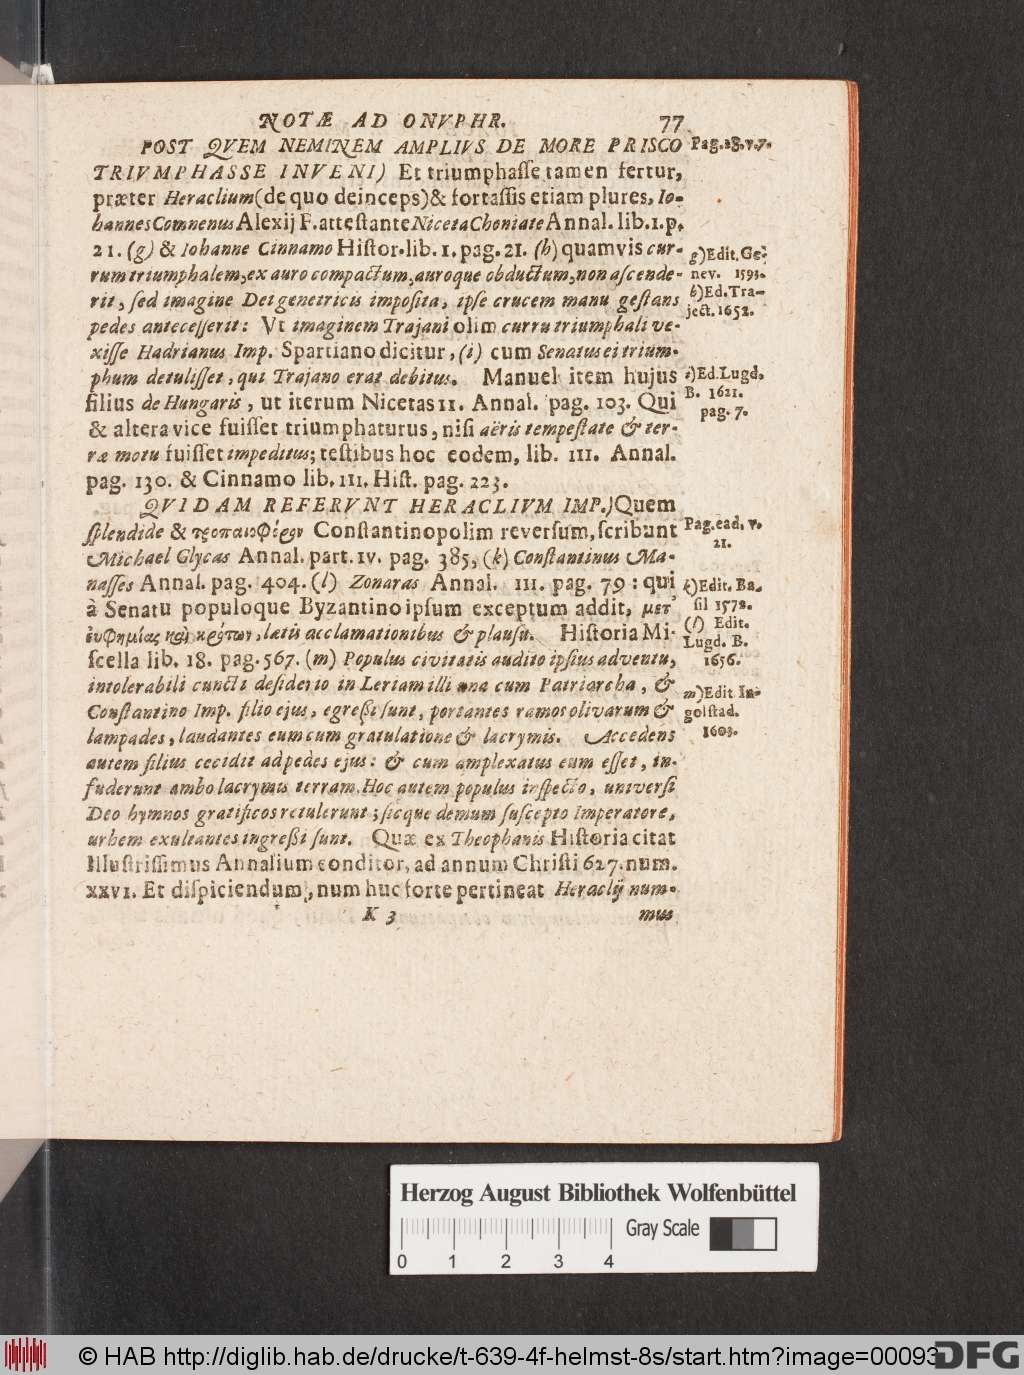 NOTÆ AD ONVPHR. 77
POST QVEM NEMINEM AMPLIVS DE MORE PRISCO
TRIVMPHASSE INVENI) Et triumphaſſe tamen fertur,
præter Heraclium (de quo deinceps) & fortaſſis etiam plures, Io-
hannes Comnenus Alexij F. atteſtante Niceta Choniate Annal. lib. 1. p.
21. (g) & Iohanne Cinnamo Hiſtor. lib. 1. pag. 21. (h) quamvis cur-
rum triumphalem, ex auro compactum, auroque obductum, non aſcende-
rit, ſed imagine Dei genetricis impoſita, ipſe crucem manu geſtans
pedes anteceſſerit: Vt imaginem Trajani olim curru triumphali ve-
xiſſe Hadrianus Imp. Spartiano dicitur, (i) cum Senatus ei trium-
phum detuliſſet, qui Trajano erat debitus. Manuel item hujus
filius de Hungaris, ut iterum Nicetas II. Annal. pag. 103. Qui
& altera vice fuiſſet triumphaturus, niſi aëris tempeſtate & ter-
ræ motu fuiſſet impeditus; teſtibus hoc eodem, lib. III. Annal.
pag. 130. & Cinnamo lib. III. Hiſt. pag. 223.
QVIDAM REFERVNT HERACLIVM IMP.) Quem
ſplendide & τροπαιοφόρον Conſtantinopolim reverſum, ſcribunt
Michael Glycas Annal. part. IV. pag. 385, (k) Conſtantinus Ma-
naſſes Annal. pag. 404. (l) Zonaras Annal. III. pag. 79: qui
à Senatu populoque Byzantino ipſum exceptum addit, μετ'
ἐυφημίας καὶ κρότων, lætis acclamationibus & plauſu. Hiſtoria Mi-
ſcella lib. 18. pag. 567. (m) Populus civitatis audito ipſius adventu,
intolerabili cuncti deſiderio in Leriam illi una cum Patriarcha, &
Conſtantino Imp. filio ejus, egreßi ſunt, portantes ramos olivarum &
lampades, laudantes eum cum gratulatione & lacrymis. Accedens
autem filius cecidit ad pedes ejus: & cum amplexatus eum eſſet, in-
fuderunt ambo lacrymis terram. Hoc autem populus inſpecto, univerſi
Deo hymnos gratificos retulerunt; ſicque demum ſuſcepto Imperatore,
urbem exultantes ingreßi ſunt. Quæ ex Theophanis Hiſtoria citat
Illuſtriſſimus Annalium conditor, ad annum Chriſti 627. num.
XXVI. Et diſpiciendum, num huc forte pertineat Heraclij num-
K 3 mus
Pag. 28. v. 7.
g) Edit. Ge-
nev. 1593.
h) Ed. Tra-
ject. 1652.
i) Ed. Lugd.
B. 1621.
pag. 7.
Pag. ead. v.
21.
k) Edit. Ba-
ſil 1572.
(l) Edit.
Lugd. B.
1656.
m) Edit In-
golſtad.
1603.
Herzog August Bibliothek Wolfenbüttel
Gray Scale
0 1 2 3 4
© HAB http://diglib.hab.de/drucke/t-639-4f-helmst-8s/start.htm?image=00093
DFG